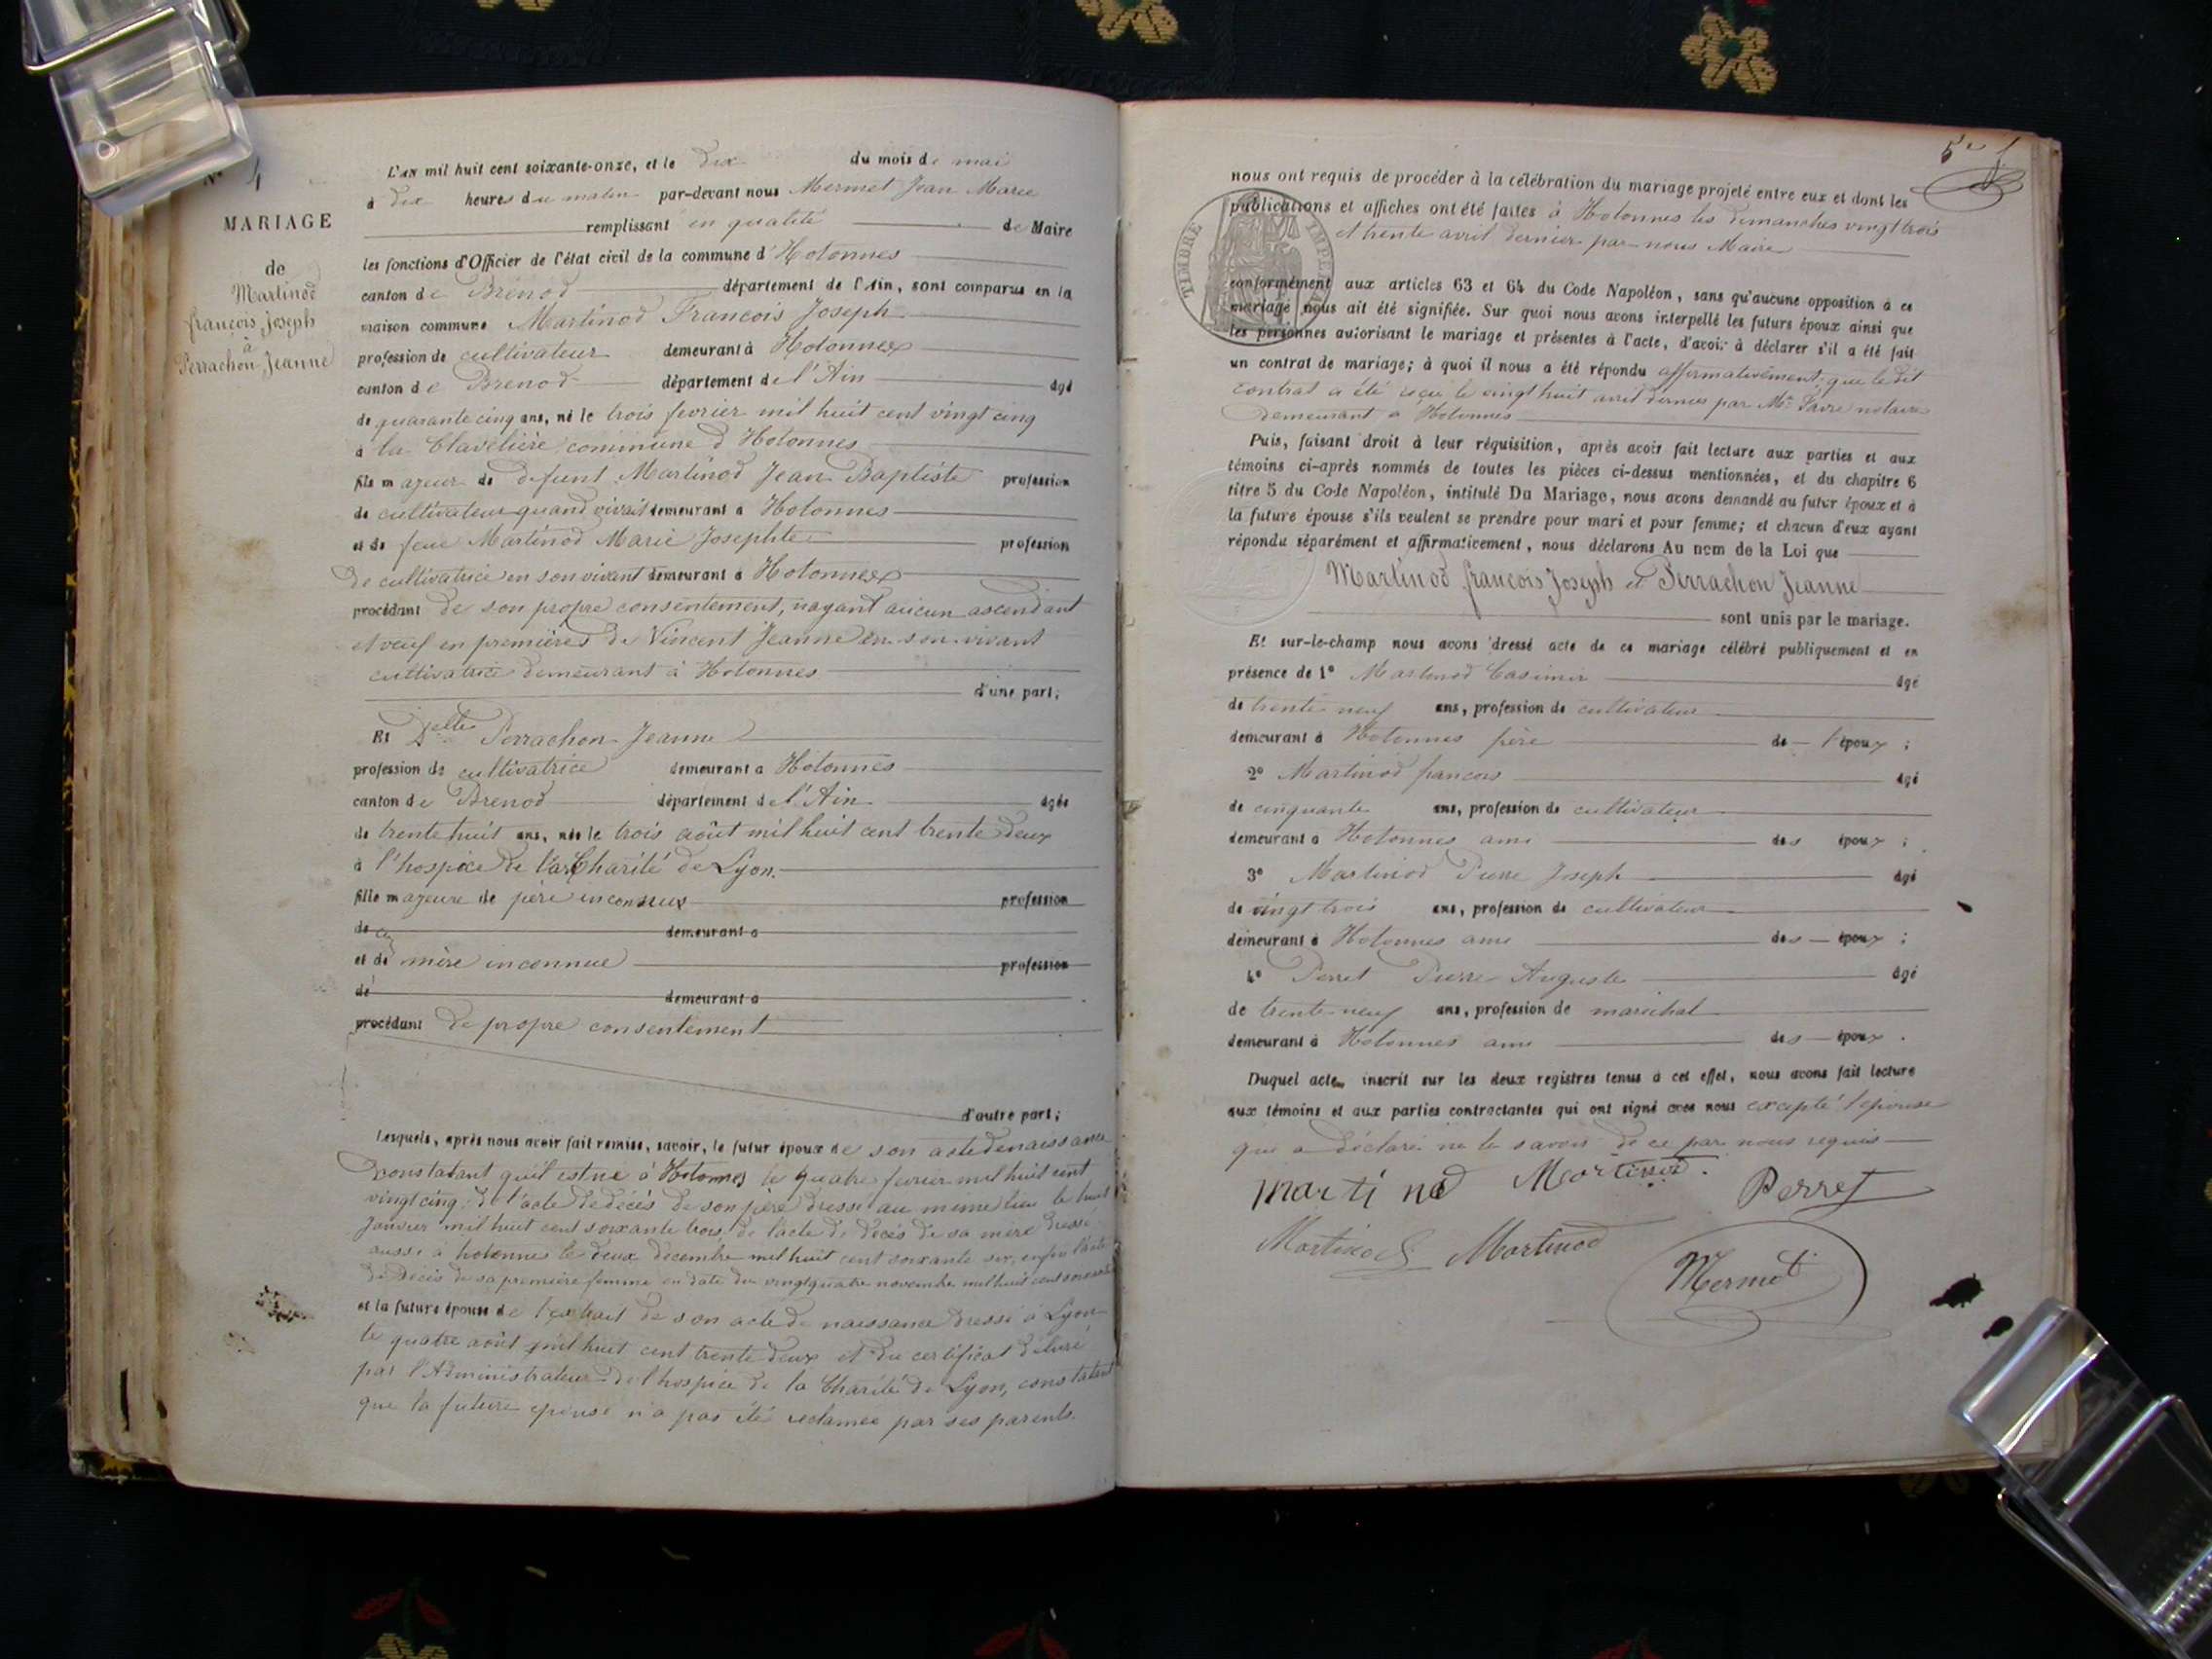 N° 4
MARIAGE
de
Martinod
françois Joseph
à
Perrachon Jeanne
L'an mil huit cent soixante-onze, et le dix du mois de mai
à dix heures du matin par-devant nous Mermet Jean Marie
remplissant en qualité de Maire
les fonctions d'Officier de l'état civil de la commune d'Hotonnes
canton de Brénod département de l'Ain, sont comparus en la
maison commune Martinod Francois Joseph
profession de cultivateur demeurant à Hotonnes
canton de Brenod département de l'Ain âgé
de quarante cinq ans, né le trois fevrier mil huit cent vingt cinq
à la Clavelière commune d'Hotonnes
fils majeur de defunt Martinod Jean Baptiste profession
de cultivateur quand vivait demeurant à Hotonnes
et de feue Martinod Marie Josephte profession
de cultivatrice en son vivant demeurant à Hotonnes
procédant de son propre consentement, n'ayant aucun ascendant
et veuf en premières de Vincent Jeanne en son vivant
cultivatrice demeurant à Hotonnes
d'une part;
Et Delle Perrachon Jeanne
profession de cultivatrice demeurant à Hotonnes
canton de Brenod département de l'Ain âgée
de trente huit ans, née le trois août mil huit cent trente deux
à l'hospice de la Charité de Lyon.
fille majeure de père inconnu profession
de demeurant à
et de mère inconnue profession
de demeurant à
procédant de propre consentement
d'autre part;
Lesquels, après nous avoir fait remise, savoir, le futur époux de son acte de naissance
constatant qu'il est né à Hotonnes le quatre fevrier mil huit cent
vingt cinq, de l'acte de décès de son père dressé au même lieu le huit
Janvier mil huit cent soixante trois, de l'acte de décès de sa mère dressé
aussi à hotonnes le deux décembre mil huit cent soixante six, enfin l'acte
de décès de sa première femme en date du vingt quatre novembre mil huit cent
et la future épouse de l'extrait de son acte de naissance dressé à Lyon
le quatre août mil huit cent trente deux et du certificat délivré
par l'Administrateur de l'hospice de la Charité de Lyon, constatant
que la future epouse n'a pas été réclamée par ses parents.
nous ont requis de procéder à la célébration du mariage projeté entre eux et dont les
publications et affiches ont été faites à Hotonnes les dimanches vingt trois
et trente avril dernier par nous Maire
TIMBRE IMPERIAL
conformément aux articles 63 et 64 du Code Napoléon, sans qu'aucune opposition à ce
mariage nous ait été signifiée. Sur quoi nous avons interpellé les futurs époux ainsi que
les personnes autorisant le mariage et présentes à l'acte, d'avoir à déclarer s'il a été fait
un contrat de mariage; à quoi il nous a été répondu affirmativement que le dit
contrat a été reçu le vingt huit avril dernier par Me notaire
demeurant à Hotonnes
Puis, faisant droit à leur réquisition, après avoir fait lecture aux parties et aux
témoins ci-après nommés de toutes les pièces ci-dessus mentionnées, et du chapitre 6
titre 5 du Code Napoléon, intitulé Du Mariage, nous avons demandé au futur époux et à
la future épouse s'ils veulent se prendre pour mari et pour femme; et chacun d'eux ayant
répondu séparément et affirmativement, nous déclarons Au nom de la Loi que
Martinod françois Joseph et Perrachon Jeanne
sont unis par le mariage.
Et sur-le-champ nous avons dressé acte de ce mariage célébré publiquement et en
présence de 1° Martinod Casimir âgé
de trente neuf ans, profession de cultivateur
demeurant à Hotonnes frère de l'époux;
2° Martinod francois âgé
de cinquante ans, profession de cultivateur
demeurant à Hotonnes ami des époux;
3° Martinod Pierre Joseph âgé
de vingt trois ans, profession de cultivateur
demeurant à Hotonnes ami des époux;
4° Perret Pierre Auguste âgé
de trente neuf ans, profession de maréchal
demeurant à Hotonnes ami des époux.
Duquel acte, inscrit sur les deux registres tenus à cet effet, nous avons fait lecture
aux témoins et aux parties contractantes qui ont signé avec nous excepté l'epouse
qui a déclaré ne le savoir de ce par nous requis
Martinod Martinod. Perret
Martinod Martinod
Mermet